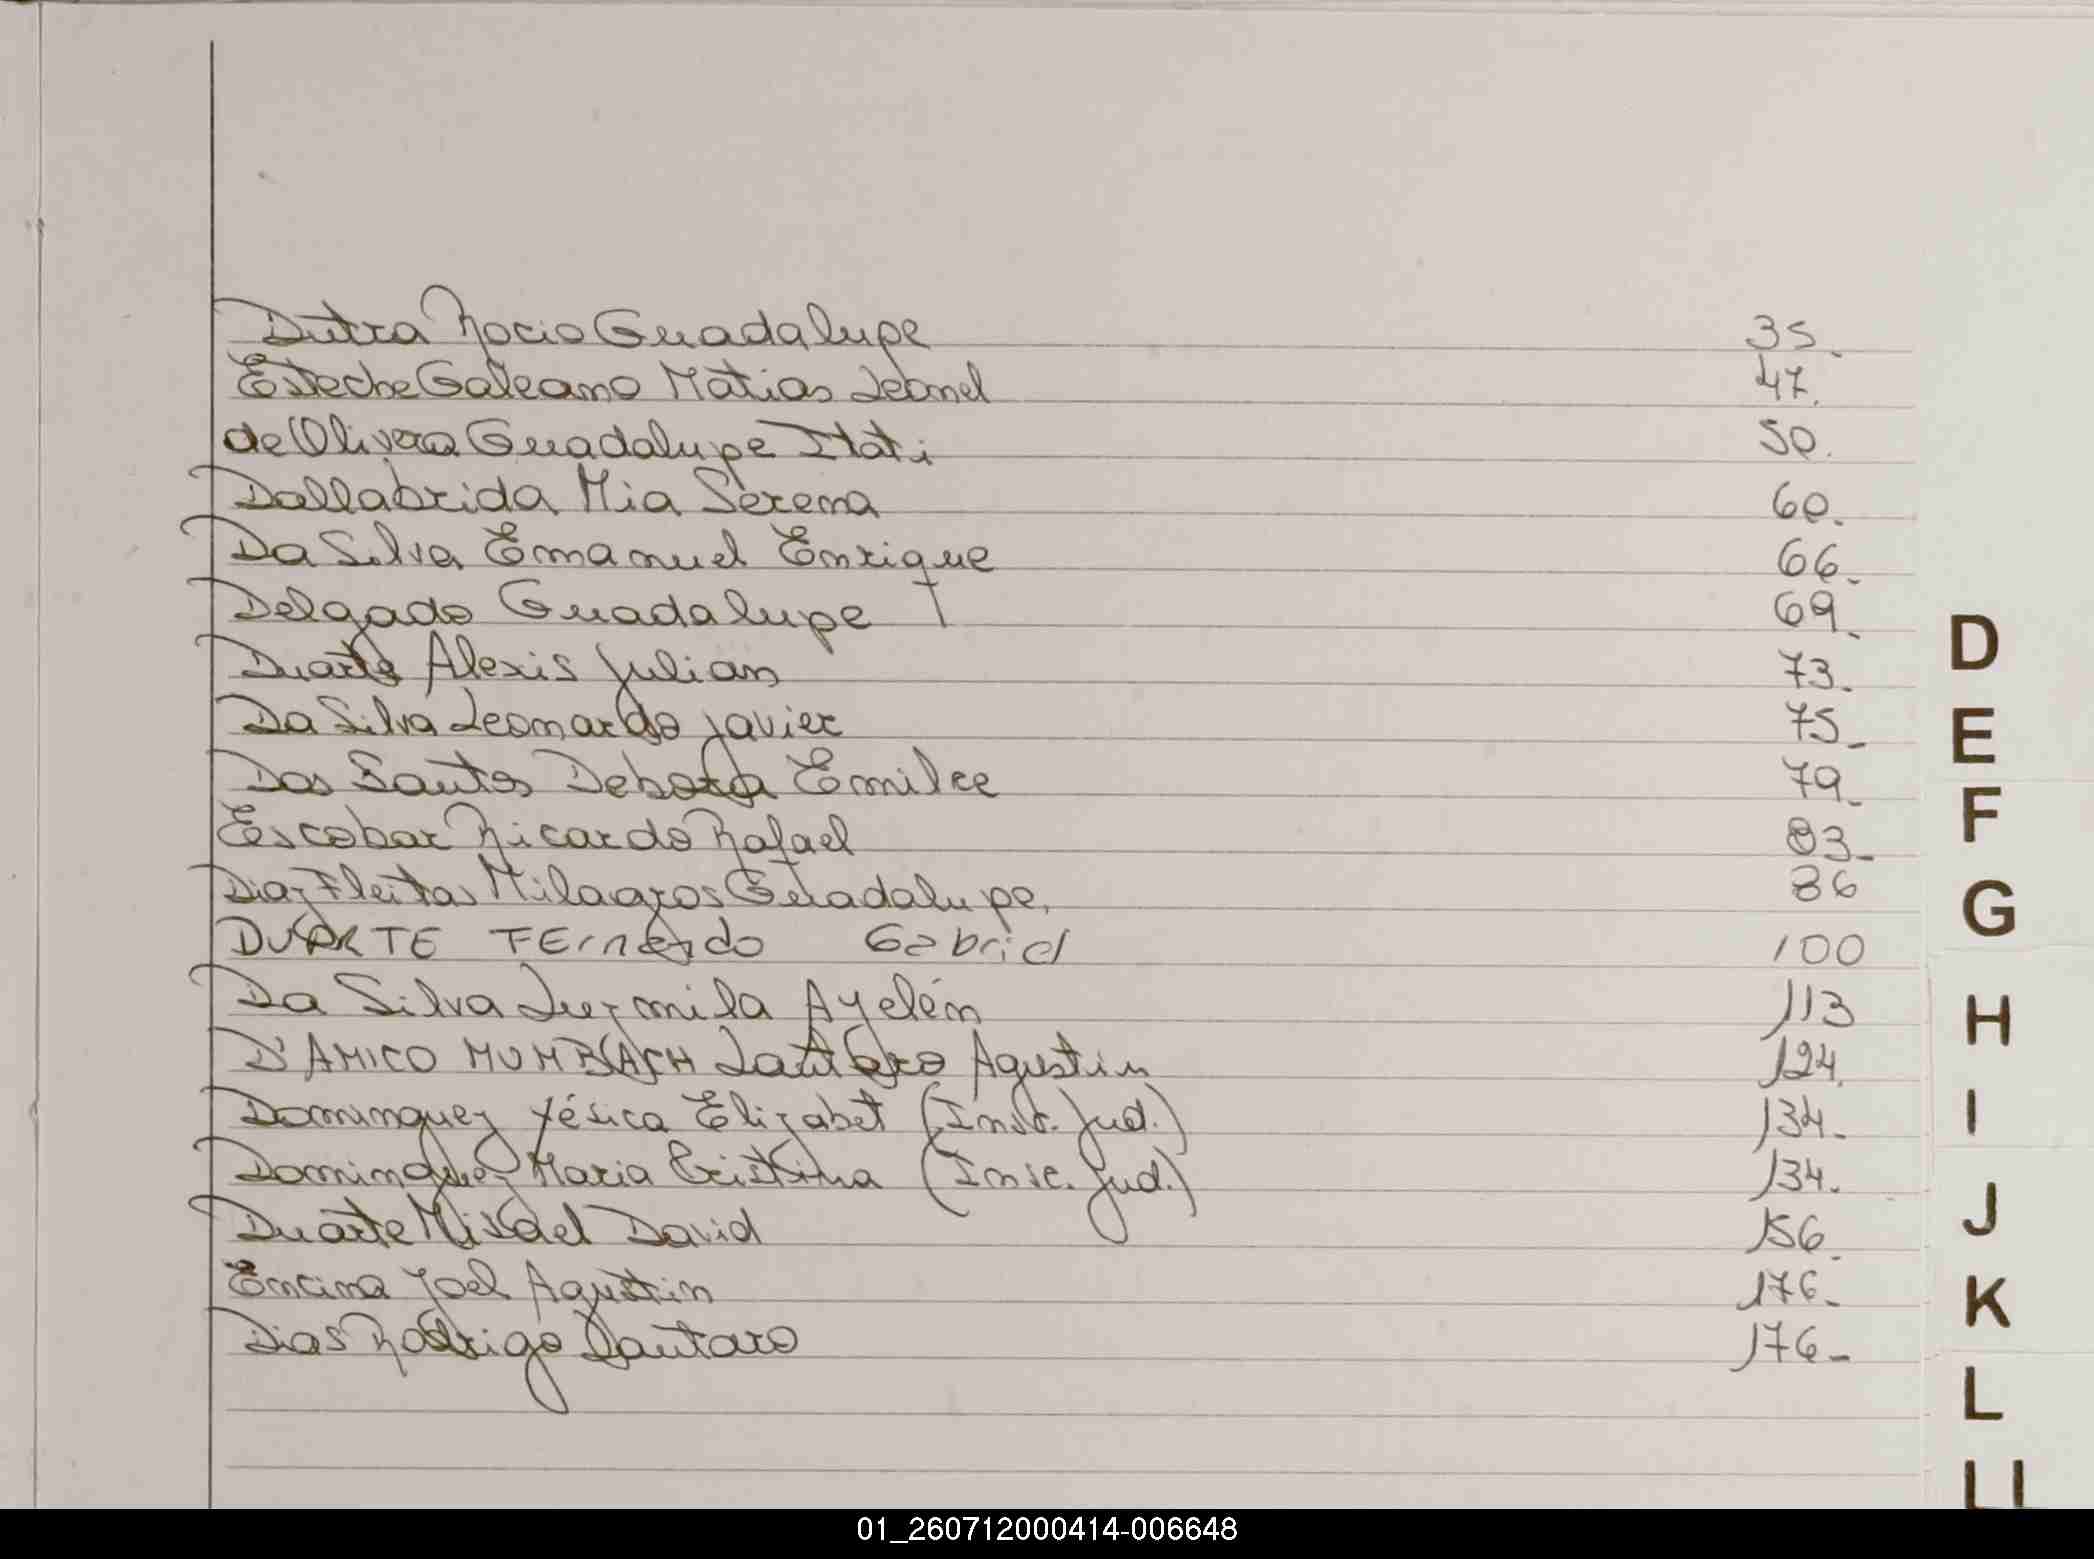 Dutra Rocio Guadalupe 35.
Esteche Galeano Matias Leonel 47.
de Olivera Guadalupe Itati 50.
Dallabrida Mia Serena 60.
Da Silva Emanuel Enrique 66.
Delgado Guadalupe † 69.
Duarte Alexis Julian 73.
Da Silva Leonardo Javier 75.
Dos Santos Debora Emilce 79.
Escobar Ricardo Rafael 83.
Diaz Fleitas Milagros Guadalupe. 86
DUARTE FErnando Gabriel 100
Da Silva Luzmila Ayelén 113
D'AMICO MUMBACH Lautaro Agustin 124.
Dominguez Yésica Elizabet (Insc. Jud.) 134.
Dominguez Maria Cristina (Insc. Jud.) 134.
Duarte Misael David 156.
Encina Joel Agustin 176.
Dias Rodrigo Lautaro 176.
D
E
F
G
H
I
J
K
L
LL
01_260712000414-006648